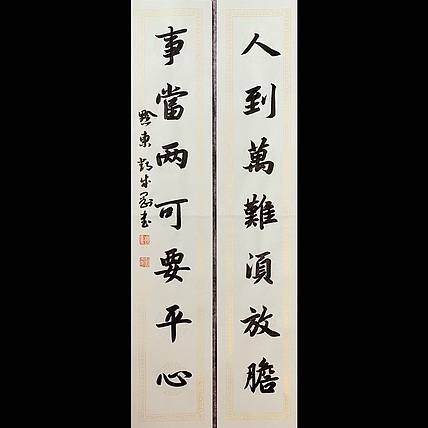 人到萬難須放膽
事當兩可要平心
黔東
書